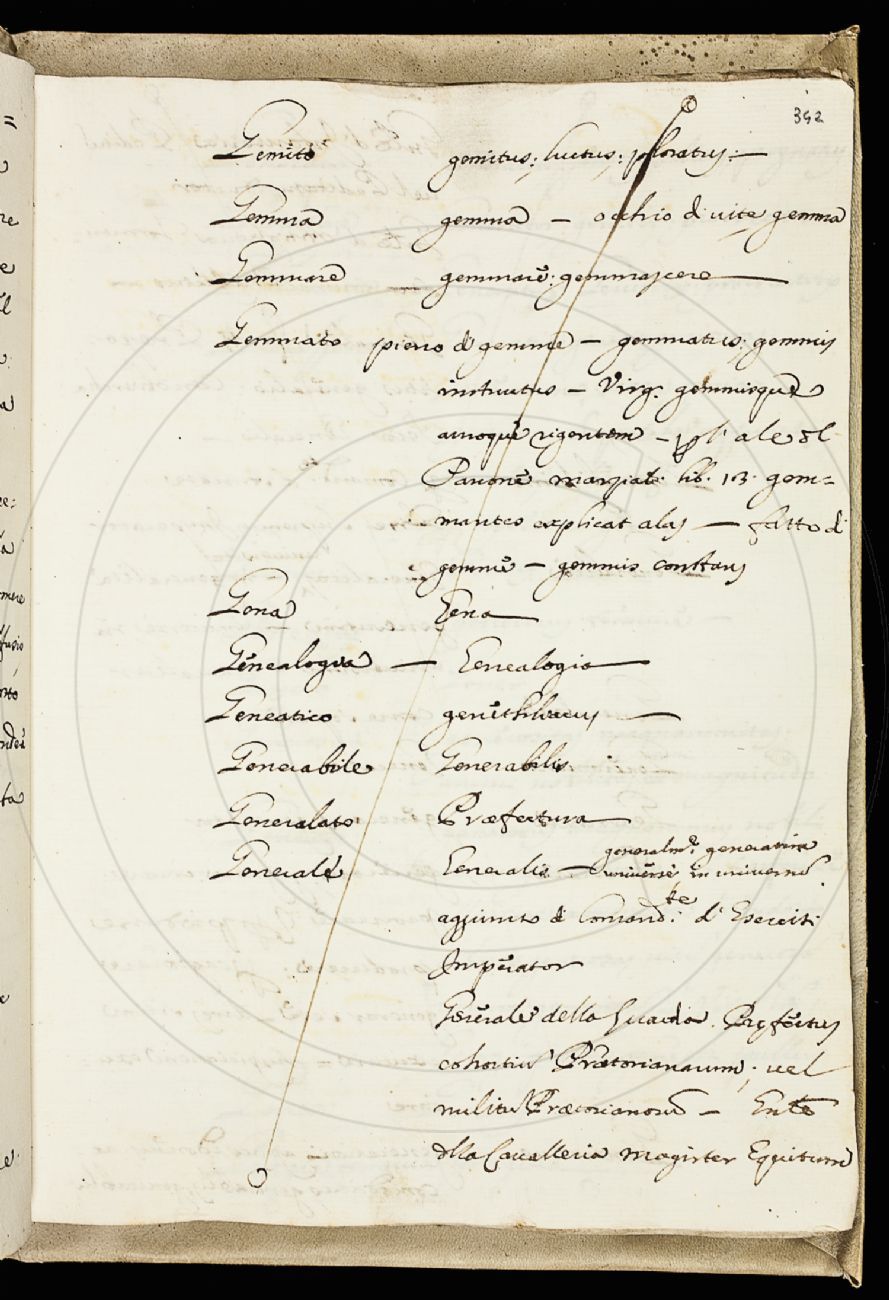 392
Gemito gemitus; luctus; ploratus
Gemma gemma — occhio di vite gemma
Gemmare gemmare; gemmascere
Gemmato pieno di gemme — gemmatus; gemmis
instructus — Virg. gemmisque
auroque rigentem — del
Pavone Marziale lib. 13. gem=
manteo explicat alas — fatto di
gemme — gemmis constans
Gena Gena
Genealogia — Genealogia
Geneatico genethliacus
Generabile Generabilis
Generalato Præfectura
generalmte: generatim
Generale Generalis — universe in universum
aggiunto di Comandte: d' Eserciti
Imperator
Generale della Guardia Præfectus
cohortiu Prætorianarum; vel
militu Prætorianoru —
della Cavalleria Magister Equitum